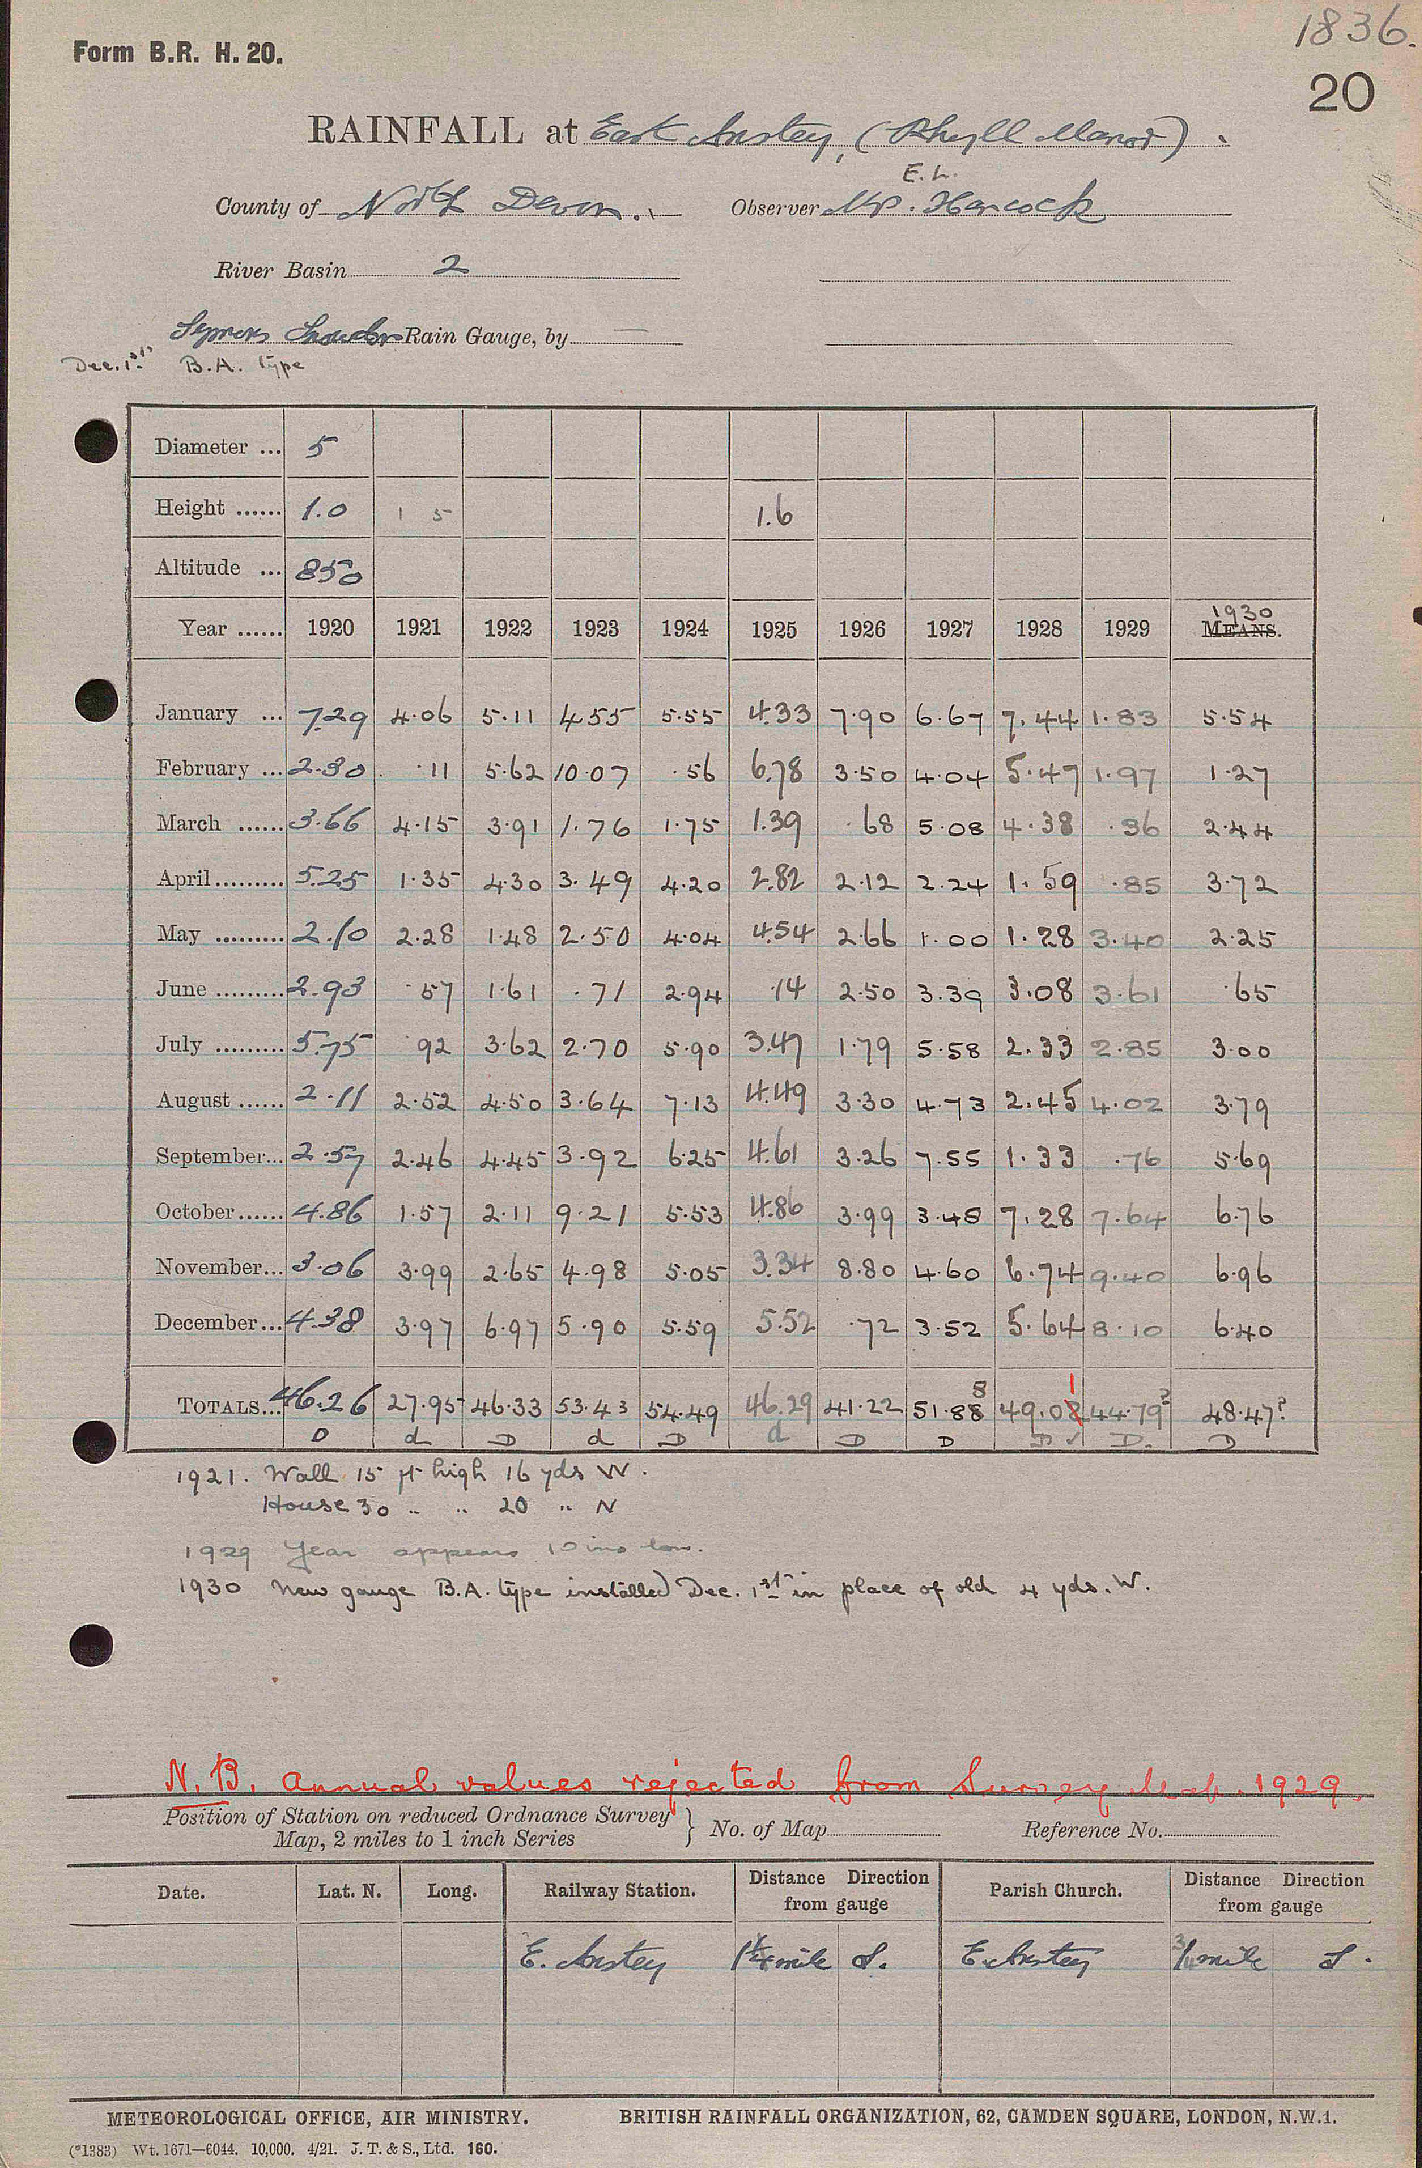 1836.
Form B.R. H. 20.
20
RAINFALL at East Anstey, (Rhyll Manor).
E. L.
County of North Devon. Observer Mr. Hancock
River Basin 2
Symons Snowdon Rain Gauge, by —
Dec. 1st B.A. type
Diameter ... 5
Height ...... 1.0 1 5 1.6
Altitude ... 850
1930
Year ...... 1920 1921 1922 1923 1924 1925 1926 1927 1928 1929 MEANS.
January ... 7.29 4.06 5.11 4.55 5.55 4.33 7.90 6.67 7.44 1.83 5.54
February ... 2.30 .11 5.62 10.07 .56 6.78 3.50 4.04 5.47 1.97 1.27
March ...... 3.66 4.15 3.91 1.76 1.75 1.39 .68 5.08 4.38 .36 2.44
April ......... 5.25 1.35 4.30 3.49 4.20 2.82 2.12 2.24 1.59 .85 3.72
May ......... 2.10 2.28 1.48 2.50 4.04 4.54 2.66 1.00 1.28 3.40 2.25
June ......... 2.93 .57 1.61 .71 2.94 .14 2.50 3.39 3.08 3.61 .65
July ......... 5.75 .92 3.62 2.70 5.90 3.47 1.79 5.58 2.33 2.85 3.00
August ...... 2.11 2.52 4.50 3.64 7.13 4.49 3.30 4.73 2.45 4.02 3.79
September... 2.57 2.46 4.45 3.92 6.25 4.61 3.26 7.55 1.33 .76 5.69
October...... 4.86 1.57 2.11 9.21 5.53 4.86 3.99 3.48 7.28 7.64 6.76
November... 3.06 3.99 2.65 4.98 5.05 3.34 8.80 4.60 6.74 9.40 6.96
December... 4.38 3.97 6.97 5.90 5.59 5.52 .72 3.52 5.64 8.10 6.40
8 1
TOTALS... 46.26 27.95 46.33 53.43 54.49 46.29 41.22 51.88 49.02 44.79? 48.47?
D d D d D d D D D ✓ D. D
1921. Wall 15 ft high 16 yds W.
House 30 " " 20 " N
1929 Year appears 10 ins low.
1930 New gauge B.A. type installed Dec. 1st in place of old 4 yds. W.
N.B. Annual values rejected from Survey Map. 1929.
Position of Station on reduced Ordnance Survey Map, 2 miles to 1 inch Series } No. of Map Reference No.
Date. Lat. N. Long. Railway Station. Distance Direction from gauge Parish Church. Distance Direction from gauge
E. Anstey 1 1/4 mile S. E. Anstey 3/4 mile S.
METEOROLOGICAL OFFICE, AIR MINISTRY. BRITISH RAINFALL ORGANIZATION, 62, CAMDEN SQUARE, LONDON, N.W.1.
(*1383) Wt. 1671—6044. 10,000. 4/21. J. T. & S., Ltd. 160.